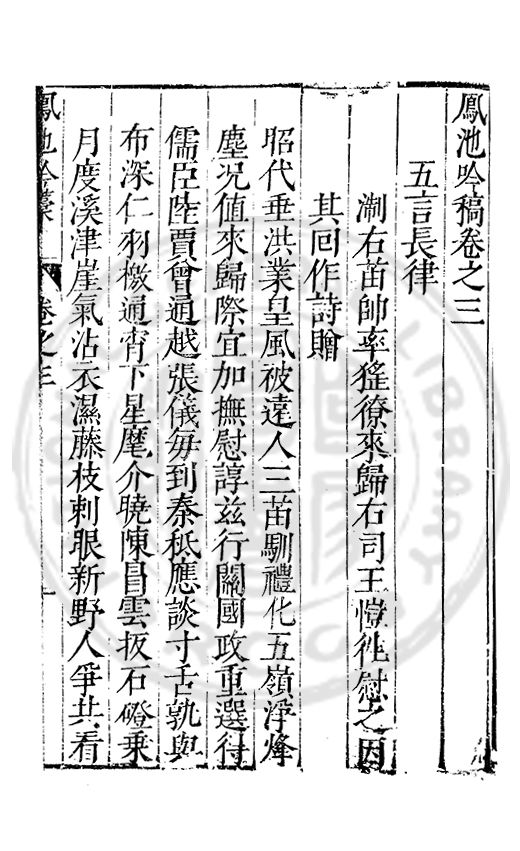 鳳池吟稿卷之三
五言長律
淛右苗帥率猺獠來歸右司王愷徃慰之因
其回作詩贈
昭代垂洪業皇風被遠人三苗馴禮化五嶺淨烽
塵况值來歸際宜加撫慰諄兹行關國政重選得
儒臣陸賈曾通越張儀每到秦秪應談寸舌孰與
布深仁羽檄通宵下星麾介曉陳冒雲扳石磴乗
月度溪津崖氣沾衣濕藤枝刺眼新野人爭共看
鳳池吟稾 卷之三 一
LIBRARY